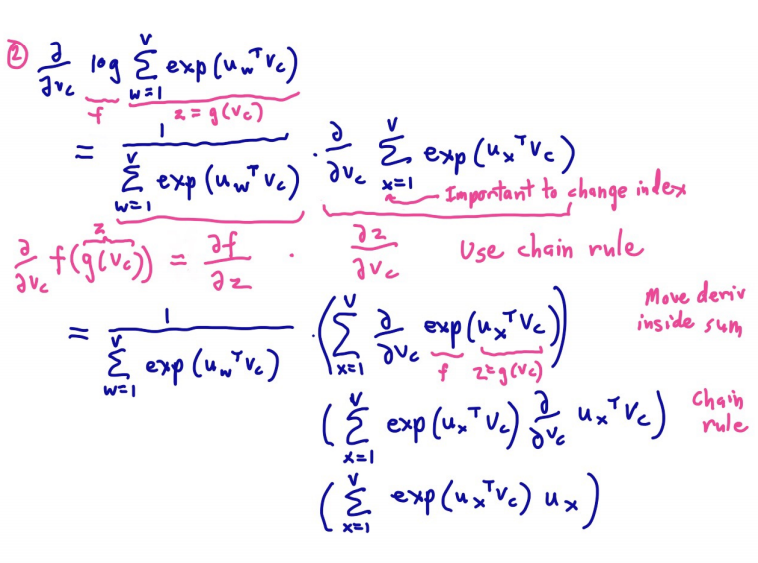 ② ∂/∂v_c log Σ_{w=1}^{V} exp(u_w^T v_c)
f z = g(v_c)
= 1 / Σ_{w=1}^{V} exp(u_w^T v_c) · ∂/∂v_c Σ_{x=1}^{V} exp(u_x^T v_c)
Important to change index
∂/∂v_c f(g(v_c)) = ∂f/∂z · ∂z/∂v_c Use chain rule
z
= 1 / Σ_{w=1}^{V} exp(u_w^T v_c) · (Σ_{x=1}^{V} ∂/∂v_c exp(u_x^T v_c)) Move deriv inside sum
f z=g(v_c)
(Σ_{x=1}^{V} exp(u_x^T v_c) ∂/∂v_c u_x^T v_c) Chain rule
(Σ_{x=1}^{V} exp(u_x^T v_c) u_x)